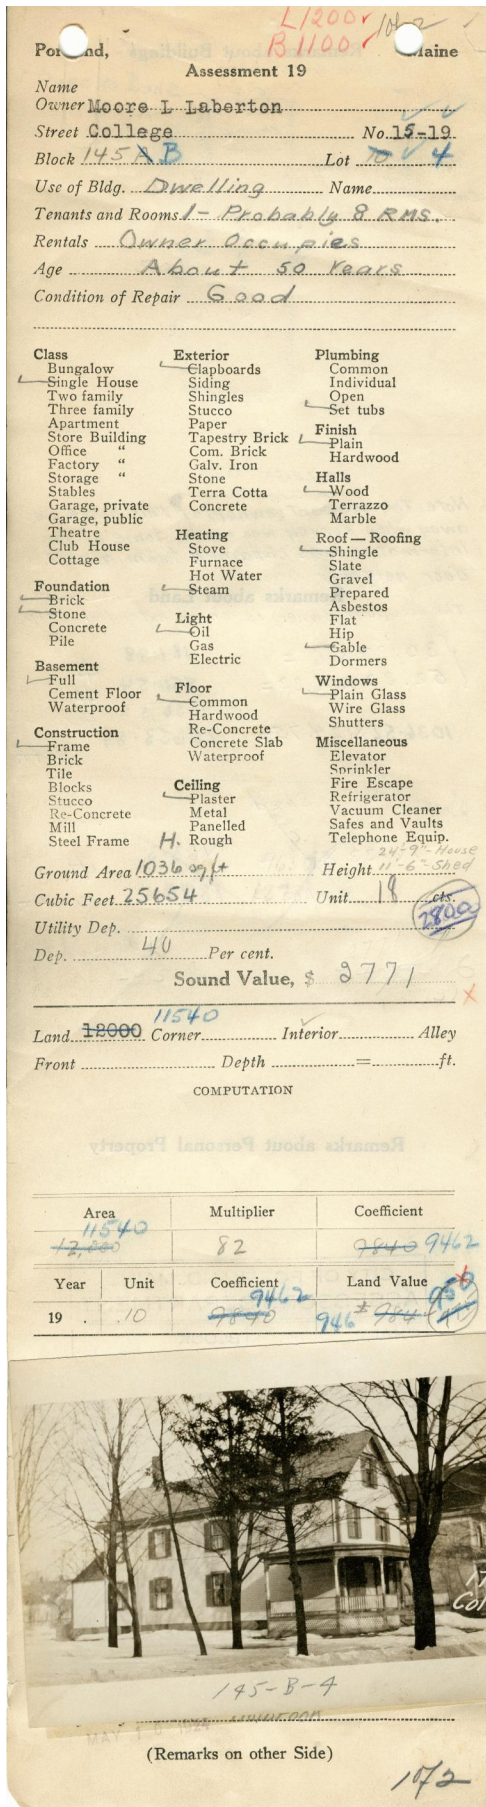 L1200 1072
B1100
Portland, Maine
Assessment 19
Name
Owner Moore L Laberton
Street College No. 15-19
Block 145 A B Lot 10 4
Use of Bldg. Dwelling Name
Tenants and Rooms 1 - Probably 8 RMS.
Rentals Owner Occupies
Age About 50 Years
Condition of Repair Good
Class
Bungalow
Single House
Two family
Three family
Apartment
Store Building
Office "
Factory "
Storage "
Stables
Garage, private
Garage, public
Theatre
Club House
Cottage
Foundation
Brick
Stone
Concrete
Pile
Basement
Full
Cement Floor
Waterproof
Construction
Frame
Brick
Tile
Blocks
Stucco
Re-Concrete
Mill
Steel Frame
Exterior
Clapboards
Siding
Shingles
Stucco
Paper
Tapestry Brick
Com. Brick
Galv. Iron
Stone
Terra Cotta
Concrete
Heating
Stove
Furnace
Hot Water
Steam
Light
Oil
Gas
Electric
Floor
Common
Hardwood
Re-Concrete
Concrete Slab
Waterproof
Ceiling
Plaster
Metal
Panelled
H. Rough
Plumbing
Common
Individual
Open
Set tubs
Finish
Plain
Hardwood
Halls
Wood
Terrazzo
Marble
Roof — Roofing
Shingle
Slate
Gravel
Prepared
Asbestos
Flat
Hip
Gable
Dormers
Windows
Plain Glass
Wire Glass
Shutters
Miscellaneous
Elevator
Sprinkler
Fire Escape
Refrigerator
Vacuum Cleaner
Safes and Vaults
Telephone Equip.
24'-9"-House
Ground Area 1036 sq ft Height 11'-6"-Shed
Cubic Feet 25654 Unit 18 cts.
2800
Utility Dep.
Dep. 40 Per cent.
Sound Value, $ 2771
11540
Land 12000 Corner Interior Alley
Front Depth = ft.
COMPUTATION
Area Multiplier Coefficient
11540
12,000 82 9840 9462
Year Unit Coefficient Land Value
9462 950
19 . .10 9840 946 984
145-B-4
MAY 1924
(Remarks on other Side)
1072